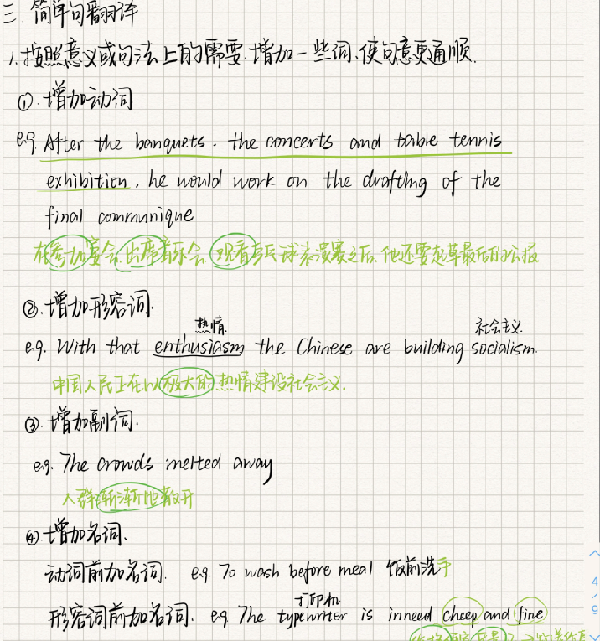 三 简单句翻译
1. 按照意义或句法上的需要,增加一些词,使句意更通顺.
①. 增加动词
e.g. After the banquets, the concerts and table tennis
exhibition, he would work on the drafting of the
final communique
在参加宴会、出席音乐会、观看乒乓球表演之后,他还要起草最后的公报
②. 增加形容词.
热情 社会主义
e.g. With that enthusiasm the Chinese are building socialism.
中国人民正在以极大的热情建设社会主义.
③. 增加副词.
e.g. The crowds melted away
人群渐渐地散开
④ 增加名词.
动词前加名词. e.g To wash before meal 饭前洗手
打印机
形容词前加名词. e.g. The typewriter is inneed cheep and fine